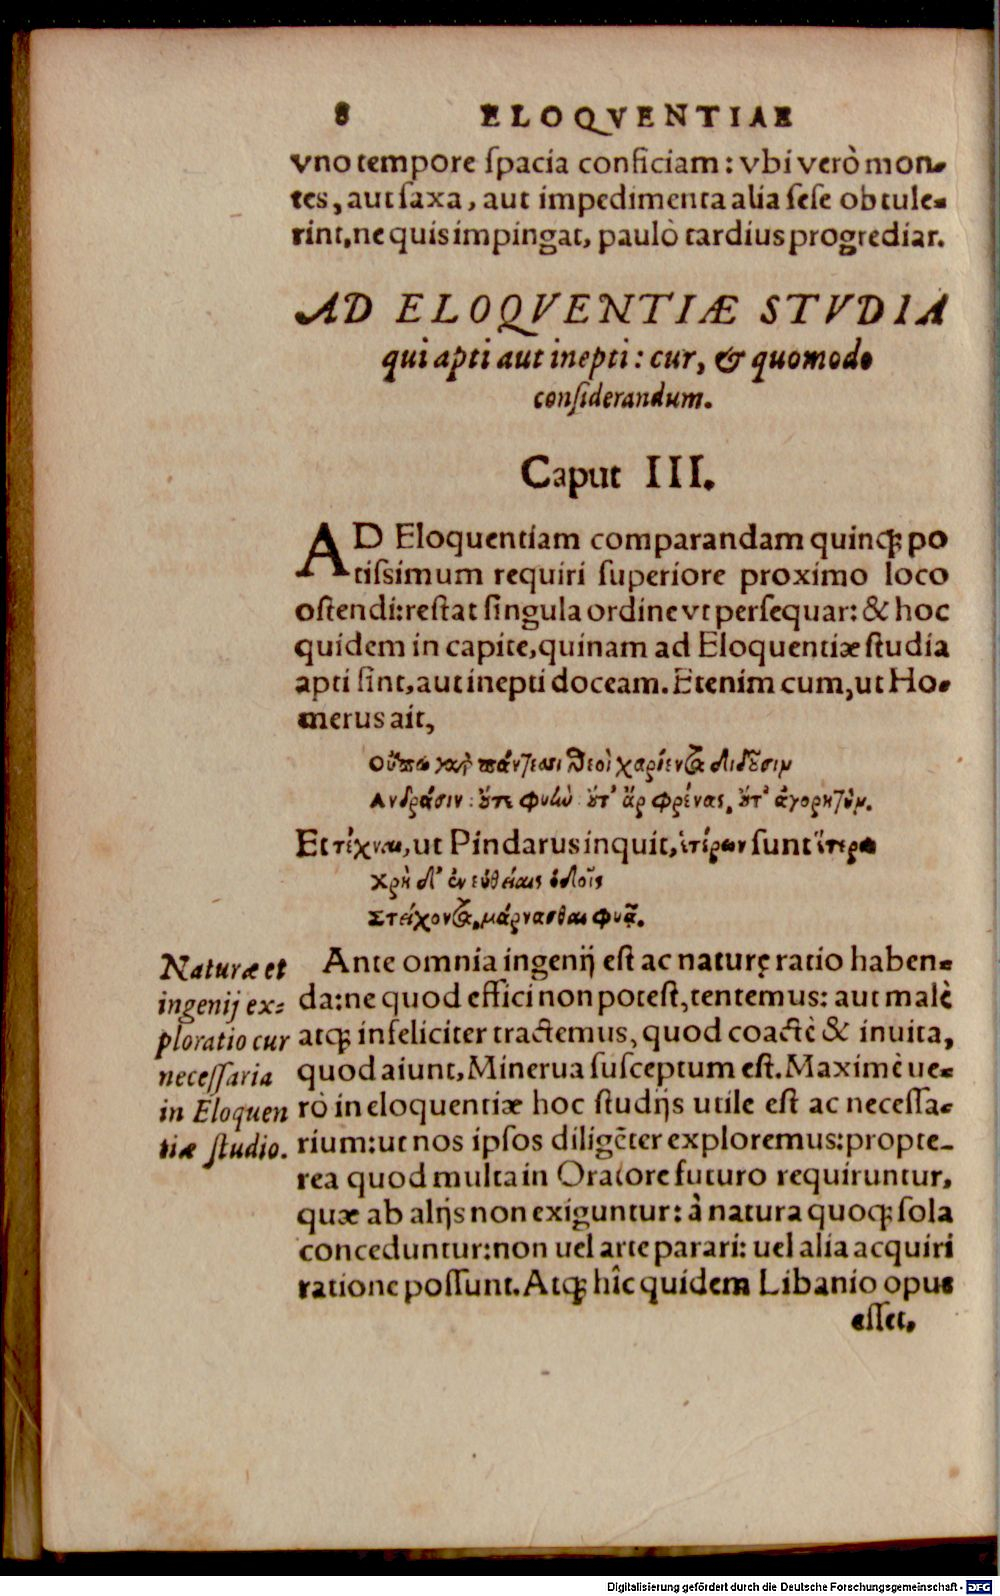 8 ELOQVENTIAE
vno tempore spacia conficiam: vbi verò mon-
tes, aut saxa, aut impedimenta alia sese obtule-
rint, ne quis impingat, paulò tardius progrediar.
AD ELOQVENTIÆ STVDIA
qui apti aut inepti: cur, & quomodo
considerandum.
Caput III.
AD Eloquentiam comparandam quinq; po
tissimum requiri superiore proximo loco
ostendi: restat singula ordine vt persequar: & hoc
quidem in capite, quinam ad Eloquentiæ studia
apti sint, aut inepti doceam. Etenim cum, ut Ho-
merus ait,
Οὔπω γὰρ πάντεσσι θεοὶ χαρίεντα διδοῦσιν
Ανδράσιν: οὔτε φυὼ οὔτ' ἂρ φρένας, οὔτ' ἀγορητύν.
Et τέχναι, ut Pindarus inquit, ἑτέρων sunt ἕτεραι
Χρὴ δ' ἐν εὐθείαις ὁδοῖς
Στείχοντα, μάρνασθαι φυᾷ.
Ante omnia ingenij est ac naturę ratio haben-
da: ne quod effici non potest, tentemus: aut malè
atq; infeliciter tractemus, quod coactè & inuita,
quod aiunt, Minerua susceptum est. Maximè ue-
rò in eloquentiæ hoc studijs utile est ac necessa-
rium: ut nos ipsos diligēter exploremus: propte-
rea quod multa in Oratore futuro requiruntur,
quæ ab alijs non exiguntur: à natura quoq; sola
conceduntur: non uel arte parari: uel alia acquiri
ratione possunt. Atq; hîc quidem Libanio opus
esset,
Naturæ et
ingenij ex-
ploratio cur
necessaria
in Eloquen
tiæ studio.
Digitalisierung gefördert durch die Deutsche Forschungsgemeinschaft - DFG